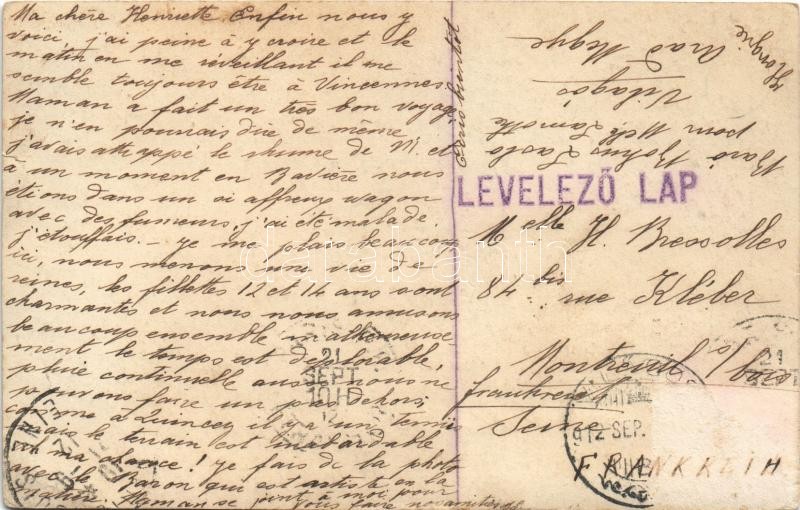 Ma chère Henriette Enfin nous y
voici, j'ai peine à y croire et le
matin en me réveillant il me
semble toujours être à Vincennes
Maman a fait un très bon voyage
je n'en pourrais dire de même
j'avais attrappé le rhume de M. et
à un moment en Bavière nous
étions dans un si affreux wagon
avec des fumeurs, j'ai été malade.
j'étouffais. - Je me plais beaucoup
ici, nous menons une vie de
reines, les fillettes 12 et 14 ans sont
charmantes et nous nous amusons
beaucoup ensemble, malheureuse-
ment le temps est déplorable,
pluie continuelle aussi nous ne
pouvons faire un peu dehors,
comme à Quincey il y a un tennis
mais le terrain est inabordable
ma chance! Je fais de la photo
avec le Baron qui est artiste en la
matière. Maman se joint à moi pour
vous faire nos amitiés
écris bientôt
Baró Bohus Laszlo
pour Melle Lamotte
Világos
Arad Megye
Hongrie
LEVELEZŐ LAP
Melle H. Bressolles
84 bis rue Kléber
Montreuil s/ bois
Frankreich
Seine
FRANKREIH
21
SEPT
12
912 SEP.
21
databanth